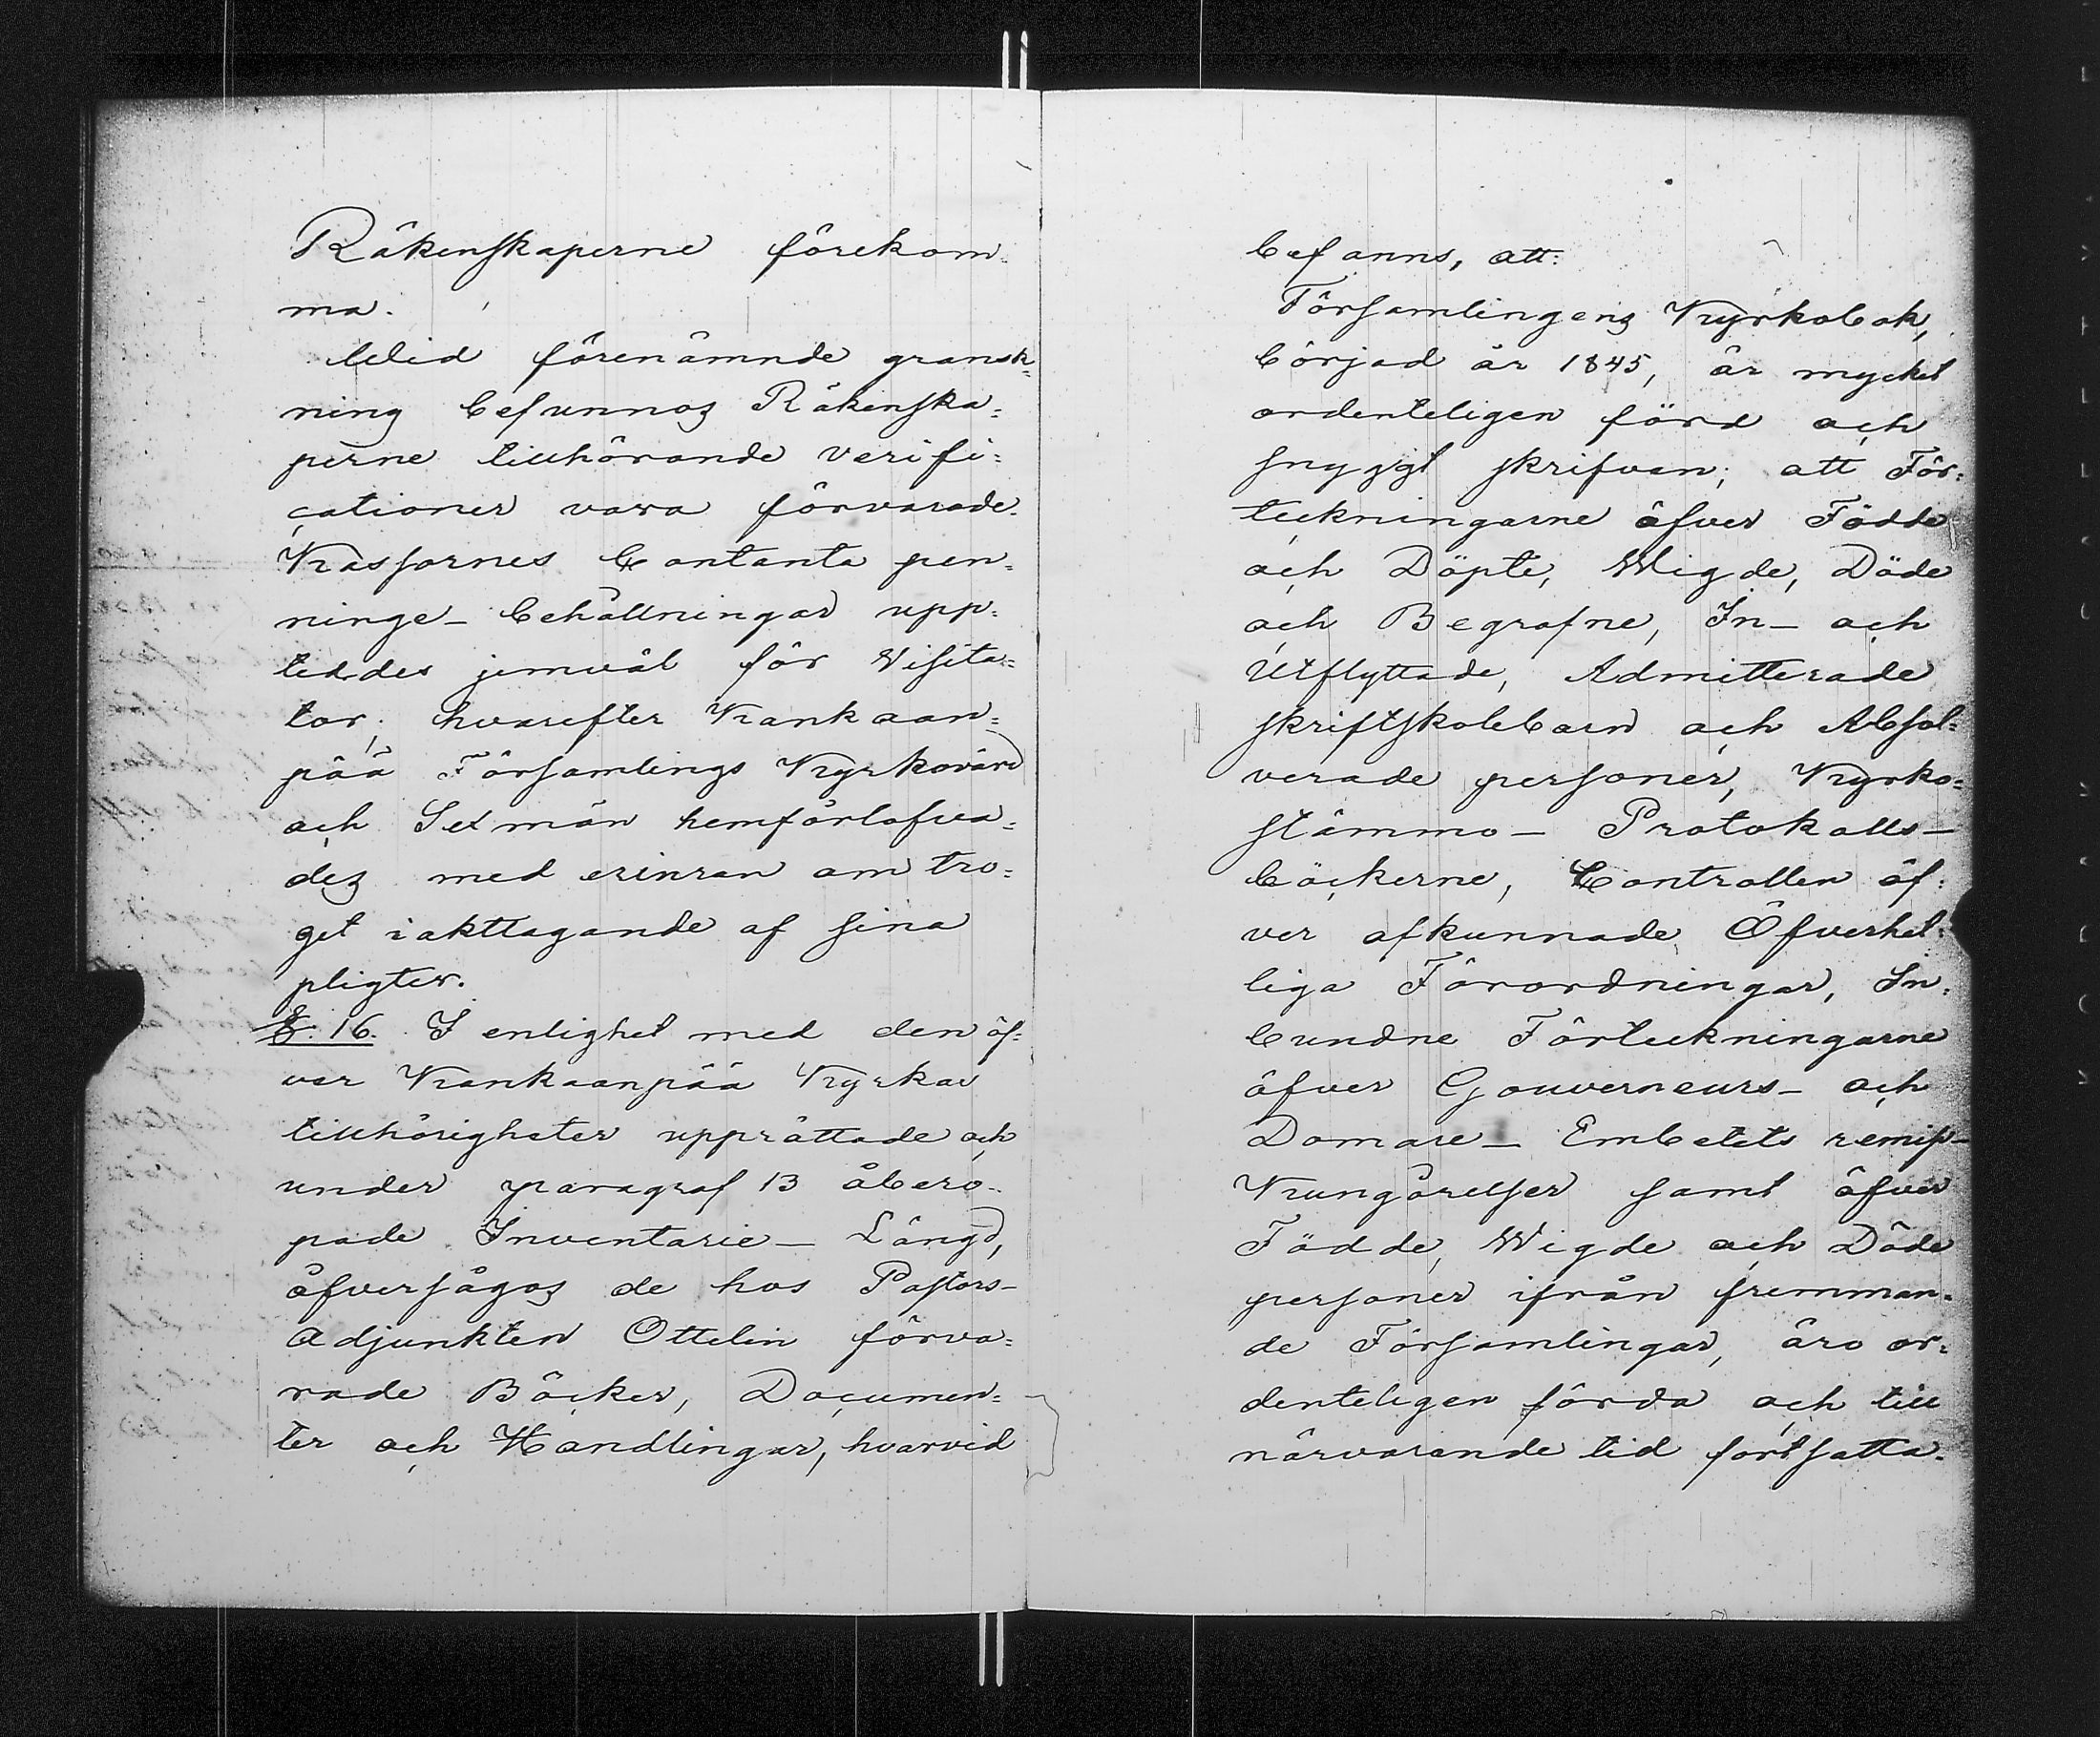 Räkenskaperne förekom-
ma.
Wid förenämnde gransk=
ning befunnos Räkenska=
perne tillhörande verifi=
cationer vara förvarade.
Kassornes Contanta pen=
ninge- behållningar upp=
teddes jemväl för Visita=
tor, hvarefter Kankaan=
pää Församlings Kyrkovärd
och Sexmän hemförlofva=
des med erinran om tro=
get iakttagande af sina
pligter.
§. 16. I enlighet med den öf=
ver Kankaanpää Kyrkas
tillhörigheter upprättade och
under paragraf 13 åbero-
pade Inventarie- Längd,
öfversågos de hos Pastors-
Adjunkten Ottelin förva=
rade Böcker, Documen=
ter och Handlingar, hvarvid
befanns, att:
Församlingens Kyrkobok,
börjad år 1845, är mycket
ordenteligen förd och
snyggt skrifven; att För=
teckningarne öfver Födde
och Döpte, Wigde, Döde
och Begrafne, In- och
Utflyttade, Admitterade
skriftskolebarn och Absol=
verade personer, Kyrko=
stämmo- Protokolls-
böckerne, Controllen öf=
ver afkunnade Öfverhet=
liga Förordningar, In=
bundne Förteckningarne
öfver Gouverneurs- och
Domare- Embetets remiss-
Kungörelser samt öfver
Födde, Wigde och Döde
personer ifrån fremman=
de Församlingar, äro or=
denteligen förda och till
närvarande tid fortsatta.